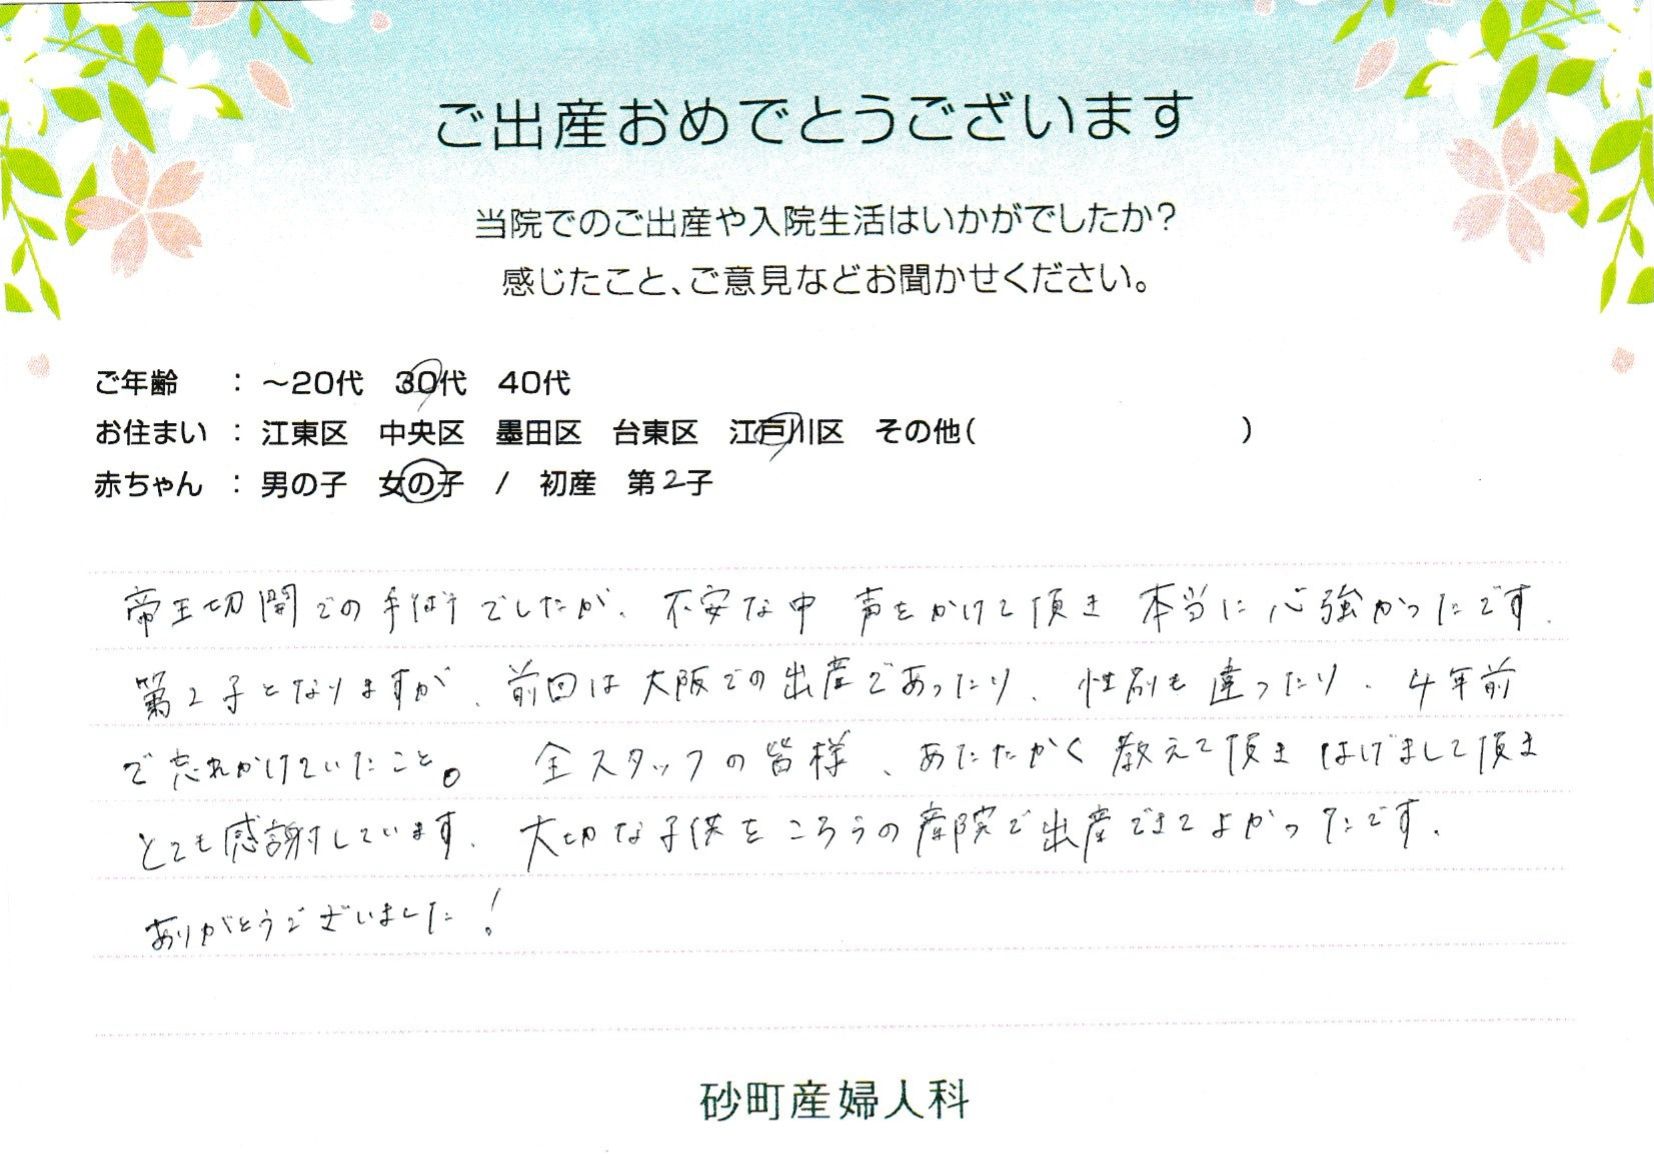 ご出産おめでとうございます
当院でのご出産や入院生活はいかがでしたか?
感じたこと、ご意見などお聞かせください。
ご年齢 : ~20代 30代 40代
お住まい : 江東区 中央区 墨田区 台東区 江戸川区 その他( )
赤ちゃん : 男の子 女の子 / 初産 第2子
帝王切開での手術でしたが、不安な中 声をかけて頂き 本当に心強かったです.
第2子となりますが、前回は大阪での出産であったり、性別も違ったり、4年前
で忘れかけていたこと。 全スタッフの皆様、あたたかく教えて頂き はげまして頂き
とても感謝しています. 大切な子供をこちらの産院で出産できてよかったです.
ありがとうございました!
砂町産婦人科